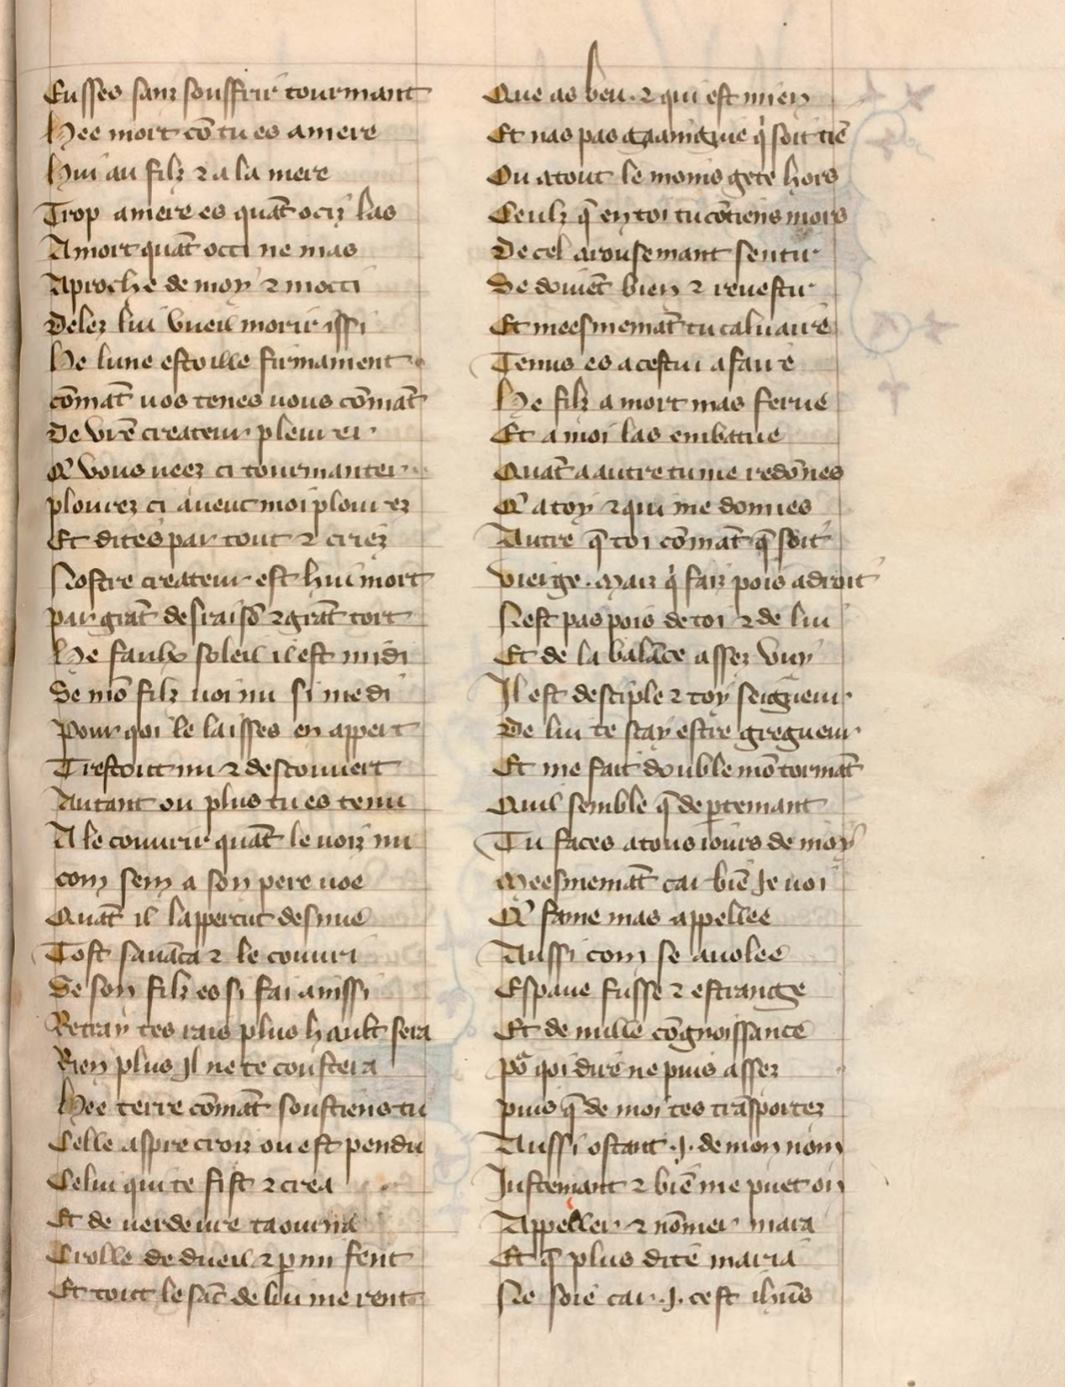 Eusses sanz souffrir tourmant
Hee mort cõ tu es amere
Hui au filz ⁊ a la mere
Trop amere es quãt ociz las
A mort quãt occi ne mas
Aproche de moy ⁊ mocci
Delez lui vueil morir issi
He lune estoille firmament
cõmãt uos tenes uous cõmãt
De vrẽ createur pleurer
Q̃ vous ueez ci tourmanter
plourez ci auenc moi plourez
Et dites par tout ⁊ criez
Nostre createur est hui mort
par grãt desraisõ ⁊ grãt tort
He faulx soleil il est midi
Se mõ filz uoi nu si me di
Pour qoi le laisses en appert
Trestout nu ⁊ descouuert
Autant ou plus tu es tenu
A le couurir quãt le uoiz nu
com sem a son pere noe
Quãt il lappercut desnue
Tost sauãca ⁊ le couuri
Se son filz es si fai aussi
Retray tes rais plus hault sera
Rien plus Il ne te coustera
Hee terre cõmãt soustiens tu
Celle aspre croiz ou est pendu
Celui qui te fist ⁊ crea
Et de uerdeure taourna
Crolle de dueil ⁊ p mi fent
Et tout le sãc de lui me rent
Que as beu ⁊ qui est mien
Et nas pas gaaingnie q̃ soit tiẽ
Ou atout le moins gete hors
Ceulz q̃ en toi tu cõtiens mors
De cel arousemant sentir
Se doiuẽt bien ⁊ reuestir
Et meesmemãt tu caluaire
Tenus es a cestui afaire
He filz a mort mas ferue
Et a moi las embatue
Quãt a autre tu me redõnes
Q̃ a toy ⁊ qui me donnes
Autre q̃ toi cõmãt q̃ soit
vierge. Maiz q̃ fait pois a droit
Nest pas pois de toi ⁊ de lui
Et de la balãce assez vuy
Il est desciple ⁊ toy seigneur
De lui te scay estre gregneur
Et me fait double mõ tormãt
Quil semble q̃ de ptemant
Tu faces a tous iours de moy
Meesmemãt car biẽ Ie uoi
Q̃ fame mas appellee
Aussi com se auolee
Espaue fusse ⁊ estrange
Et de nulle cõgnoissance
põ qoi dire ne puis assez
puis q̃ de moi tes trãsportez
Aussi ostant .J. de mon nom
Justemant ⁊ biẽ me puet on
Appeller ⁊ nõmer mara
Et q̃ plus dite maria
Ne soie car .J. cest ihũs